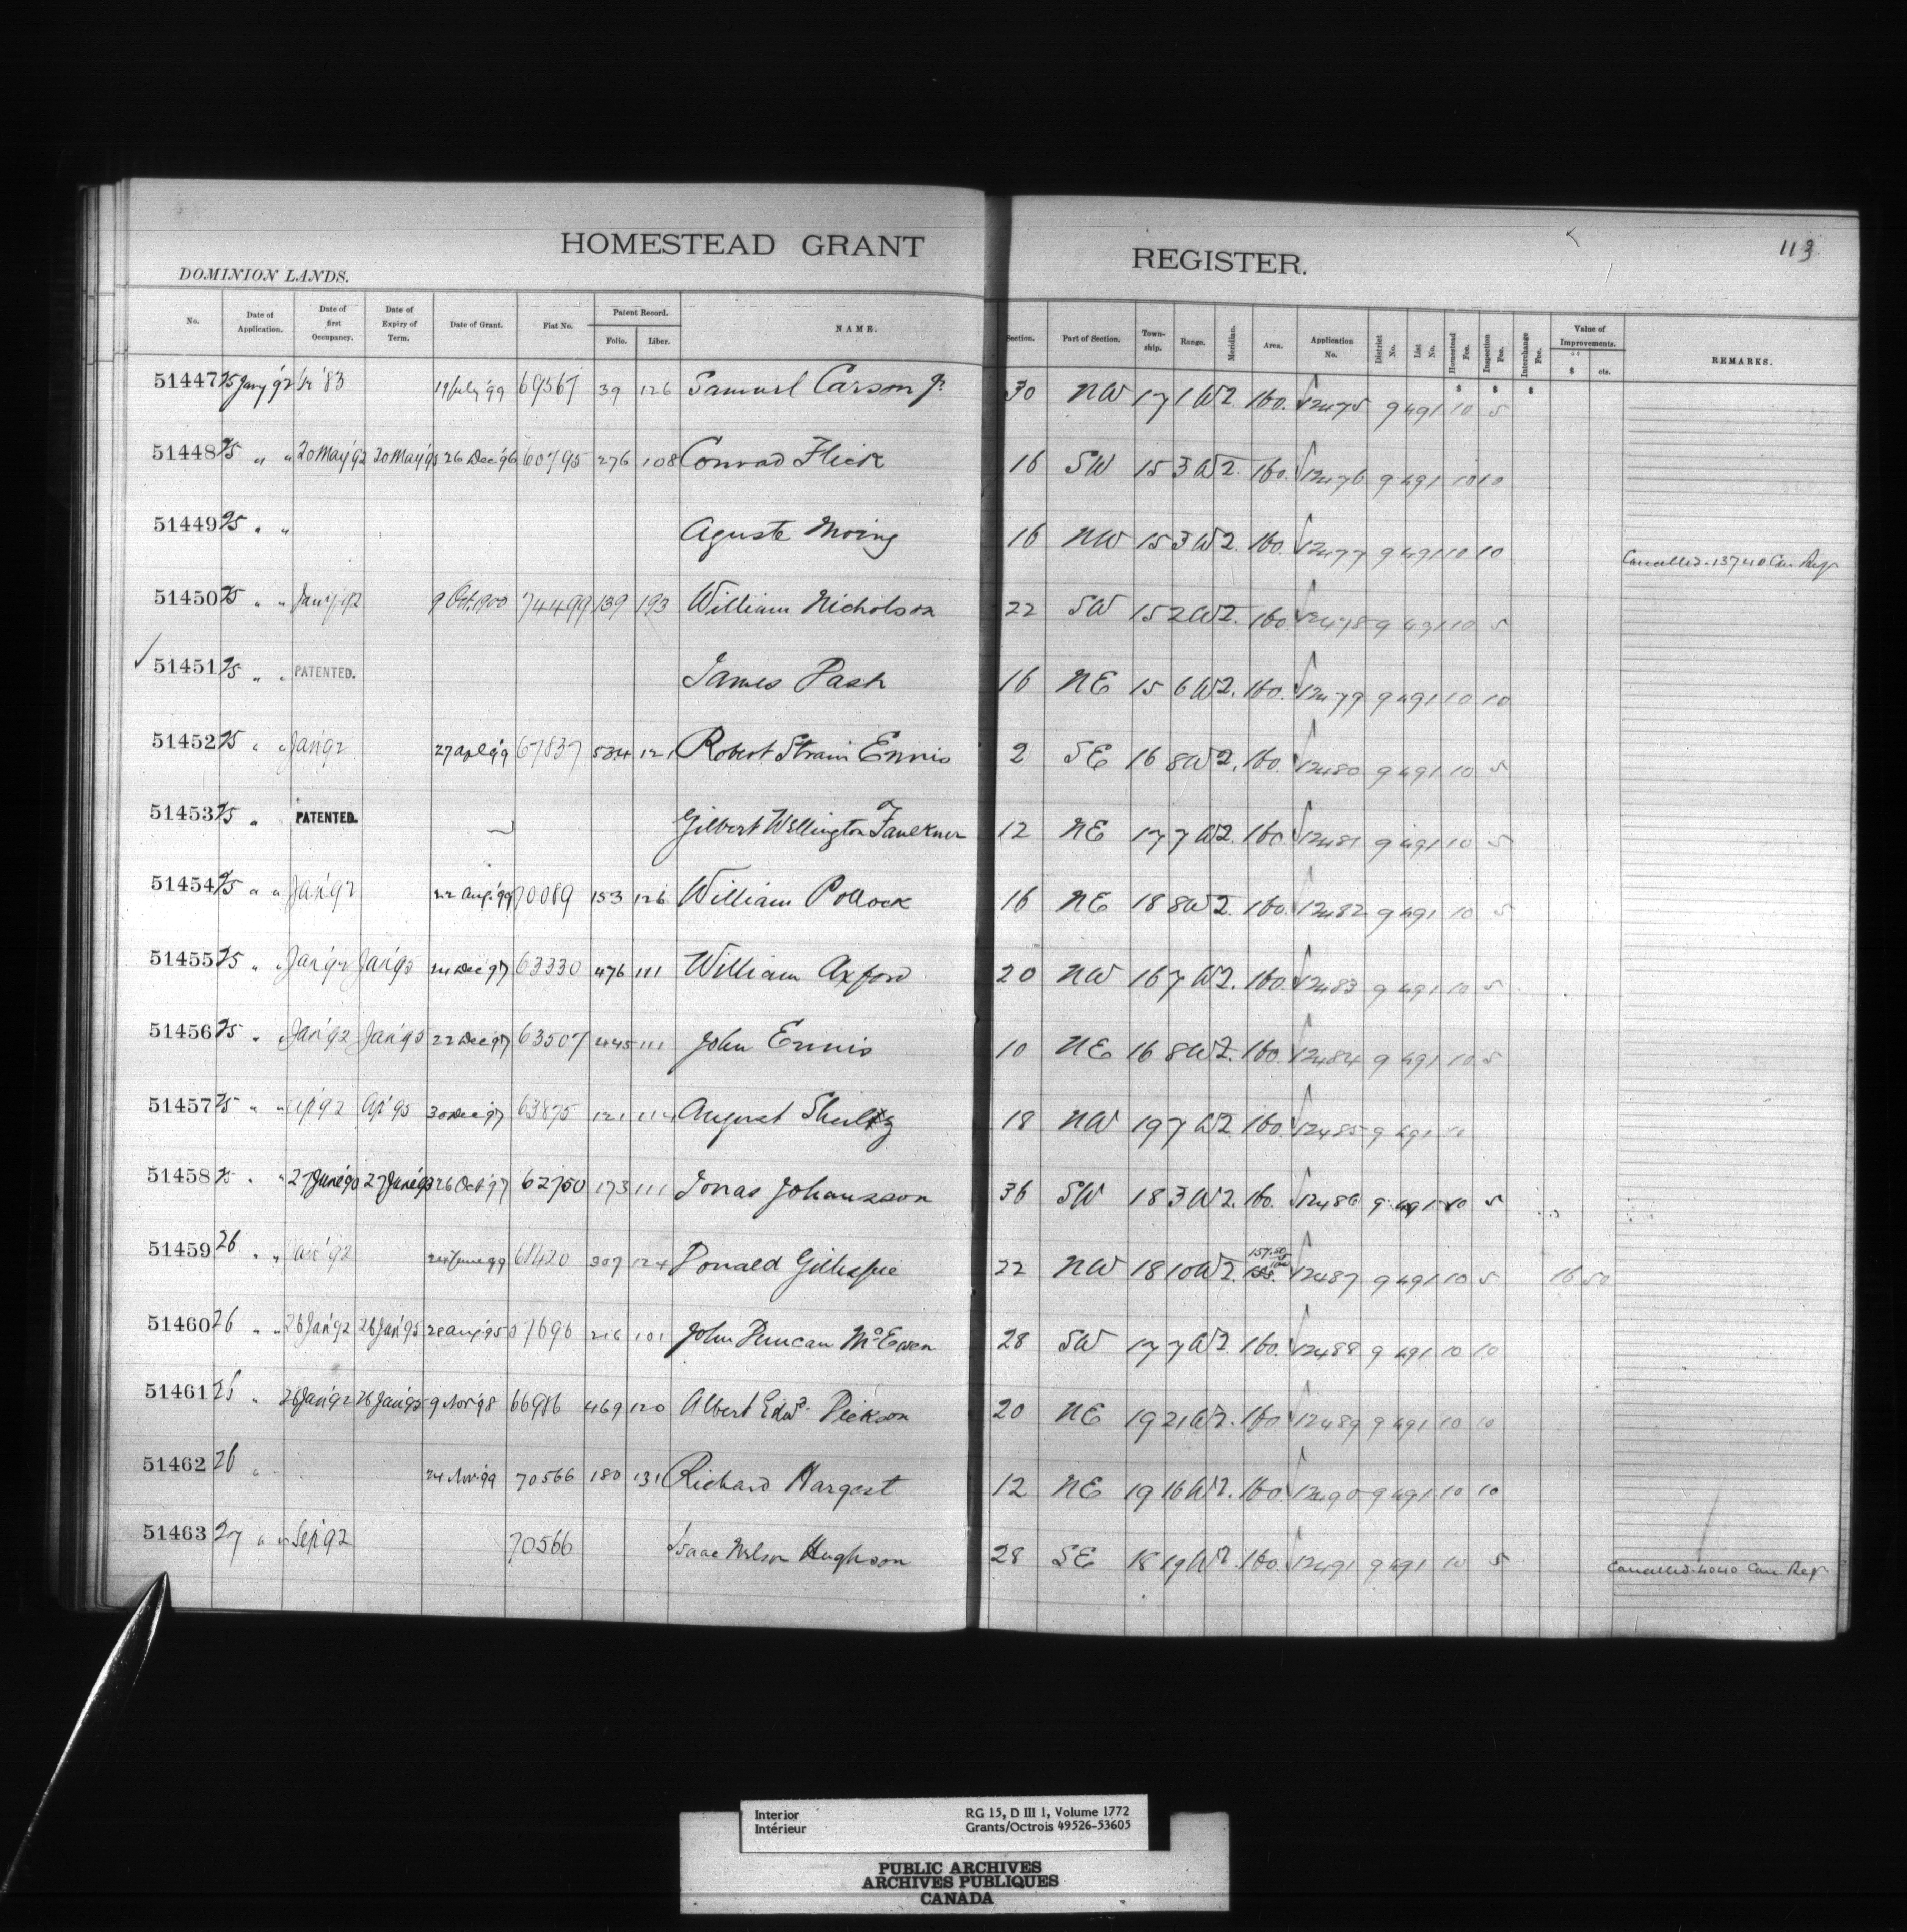 HOMESTEAD GRANT REGISTER.
113
DOMINION LANDS.
No. Date of Application. Date of first Occupancy. Date of Expiry of Term. Date of Grant. Fiat No. Patent Record. Folio. Liber. NAME. Section. Part of Section. Township. Range. Meridian. Area. Application No. District No. List No. Homestead Fee. Inspection Fee. Interchange Fee. Value of Improvements. $ cts. REMARKS.
51447 25 Jany '92 '83 19 July '99 69567 39 126 Samuel Carson Jr 30 NW 17 1 W2. 160. 12475 9 491 10 5
51448 25 " " 20 May '92 20 May '95 26 Dec '96 60795 276 108 Conrad Flick 16 SW 15 3 W2. 160. 12476 9 491 10 10
51449 25 " " Aguste Moing 16 NW 15 3 W2. 160. 12477 9 491 10 10 Cancelled. 13740 Can Reg
51450 25 " " 9 Oct. 1900 74499 139 193 William Nicholson 22 SW 15 2 W2. 160. 12478 9 491 10 5
51451 25 " " PATENTED. James Pash 16 NE 15 6 W2. 160. 12479 9 491 10 10
51452 25 " " Jan '92 27 apl '99 67837 534 121 Robert Strain Ennis 2 SE 16 8 W2. 160. 12480 9 491 10 5
51453 25 " PATENTED. Gilbert Wellington Faulkner 12 NE 17 7 W2. 160. 12481 9 491 10 5
51454 25 " " Jan '92 22 Aug. '99 70089 153 126 William Pollock 16 NE 18 8 W2. 160. 12482 9 491 10 5
51455 25 " " Jan '92 Jan '95 24 Dec '97 63330 476 111 William Axford 20 NW 16 7 W2. 160. 12483 9 491 10 5
51456 25 " " Jan '92 Jan '95 22 Dec '97 63507 445 111 John Ennis 10 NE 16 8 W2. 160. 12484 9 491 10 5
51457 25 " " Ap '92 Ap '95 30 Dec '97 63875 121 August Shultz 18 NW 19 7 W2 160. 12485 9 491 10
51458 25 " " 27 June '90 27 June '93 26 Oct '97 62750 173 111 Jonas Johansson 36 SW 18 3 W2. 160. 12486 9 491 10 5
51459 26 " " Jan '92 June 99 307 124 Donald Gillespie 22 NW 18 10 W2. 157.50 12487 9 491 10 5 16 50
51460 26 " " 26 Jan '92 26 Jan '95 28 Aug '95 57696 216 101 John Duncan McEwen 28 SW 17 7 W2. 160. 12488 9 491 10 10
51461 26 " 26 Jan '92 26 Jan '95 9 Nov '98 66986 469 120 Albert Edwd. Dickson 20 NE 19 21 W2. 160 12489 9 491 10 10
51462 26 " 24 Nov. '99 70566 180 131 Richard Hargest 12 NE 19 16 W2. 160. 12490 9 491 10 10
51463 27 " " Sep '92 70566 Isaac Nelson Hughson 28 SE 18 19 W2 160. 12491 9 491 10 5 Cancelled. 4040 Can. Reg.
Interior
Intérieur
RG 15, D III 1, Volume 1772
Grants/Octrois 49526-53605
PUBLIC ARCHIVES
ARCHIVES PUBLIQUES
CANADA